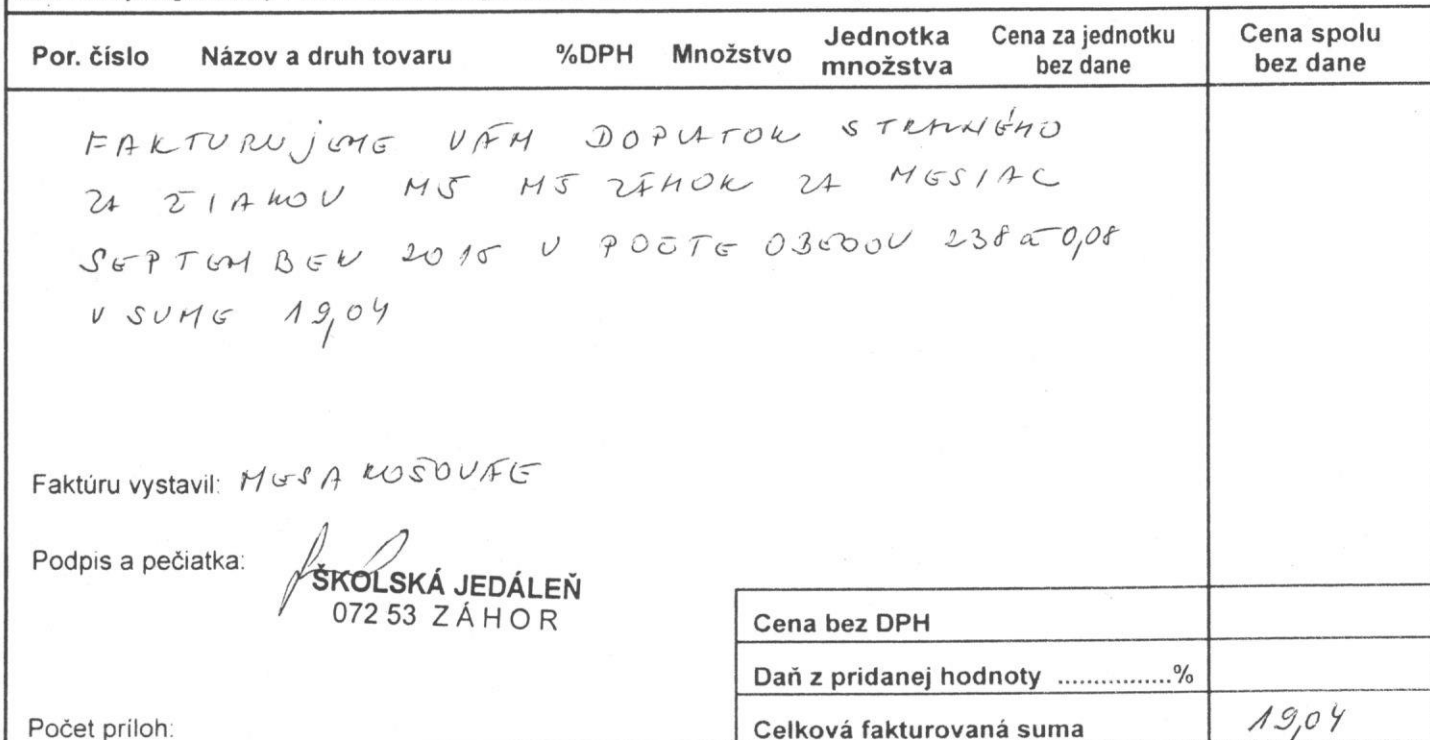 Por. číslo Názov a druh tovaru %DPH Množstvo Jednotka množstva Cena za jednotku bez dane Cena spolu bez dane
FAKTURUJEME VÁM DOPLATOK STRAVNÉHO
ZA ŽIAKOV MŠ MŠ ZÁHOR ZA MESIAC
SEPTEMBER 2015 V POČTE OBEDOV 238 á 0,08
V SUME 19,04
Faktúru vystavil:
Podpis a pečiatka:
ŠKOLSKÁ JEDÁLEŇ
072 53 ZÁHOR
Cena bez DPH
Daň z pridanej hodnoty ................%
Počet príloh:
Celková fakturovaná suma 19,04